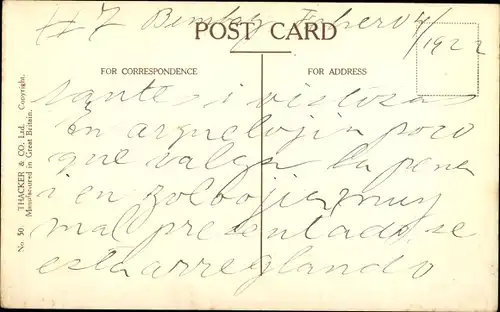 #7 Bombay Febrero 4/1922
POST CARD
FOR CORRESPONDENCE
FOR ADDRESS
santes i vistosas
En arquelojia poco
que valga la pena
i en zoloojia muy
mal presentado, se
esta arreglando
No. 50. THACKER & CO., Ltd. Copyright.
Manufactured in Great Britain.